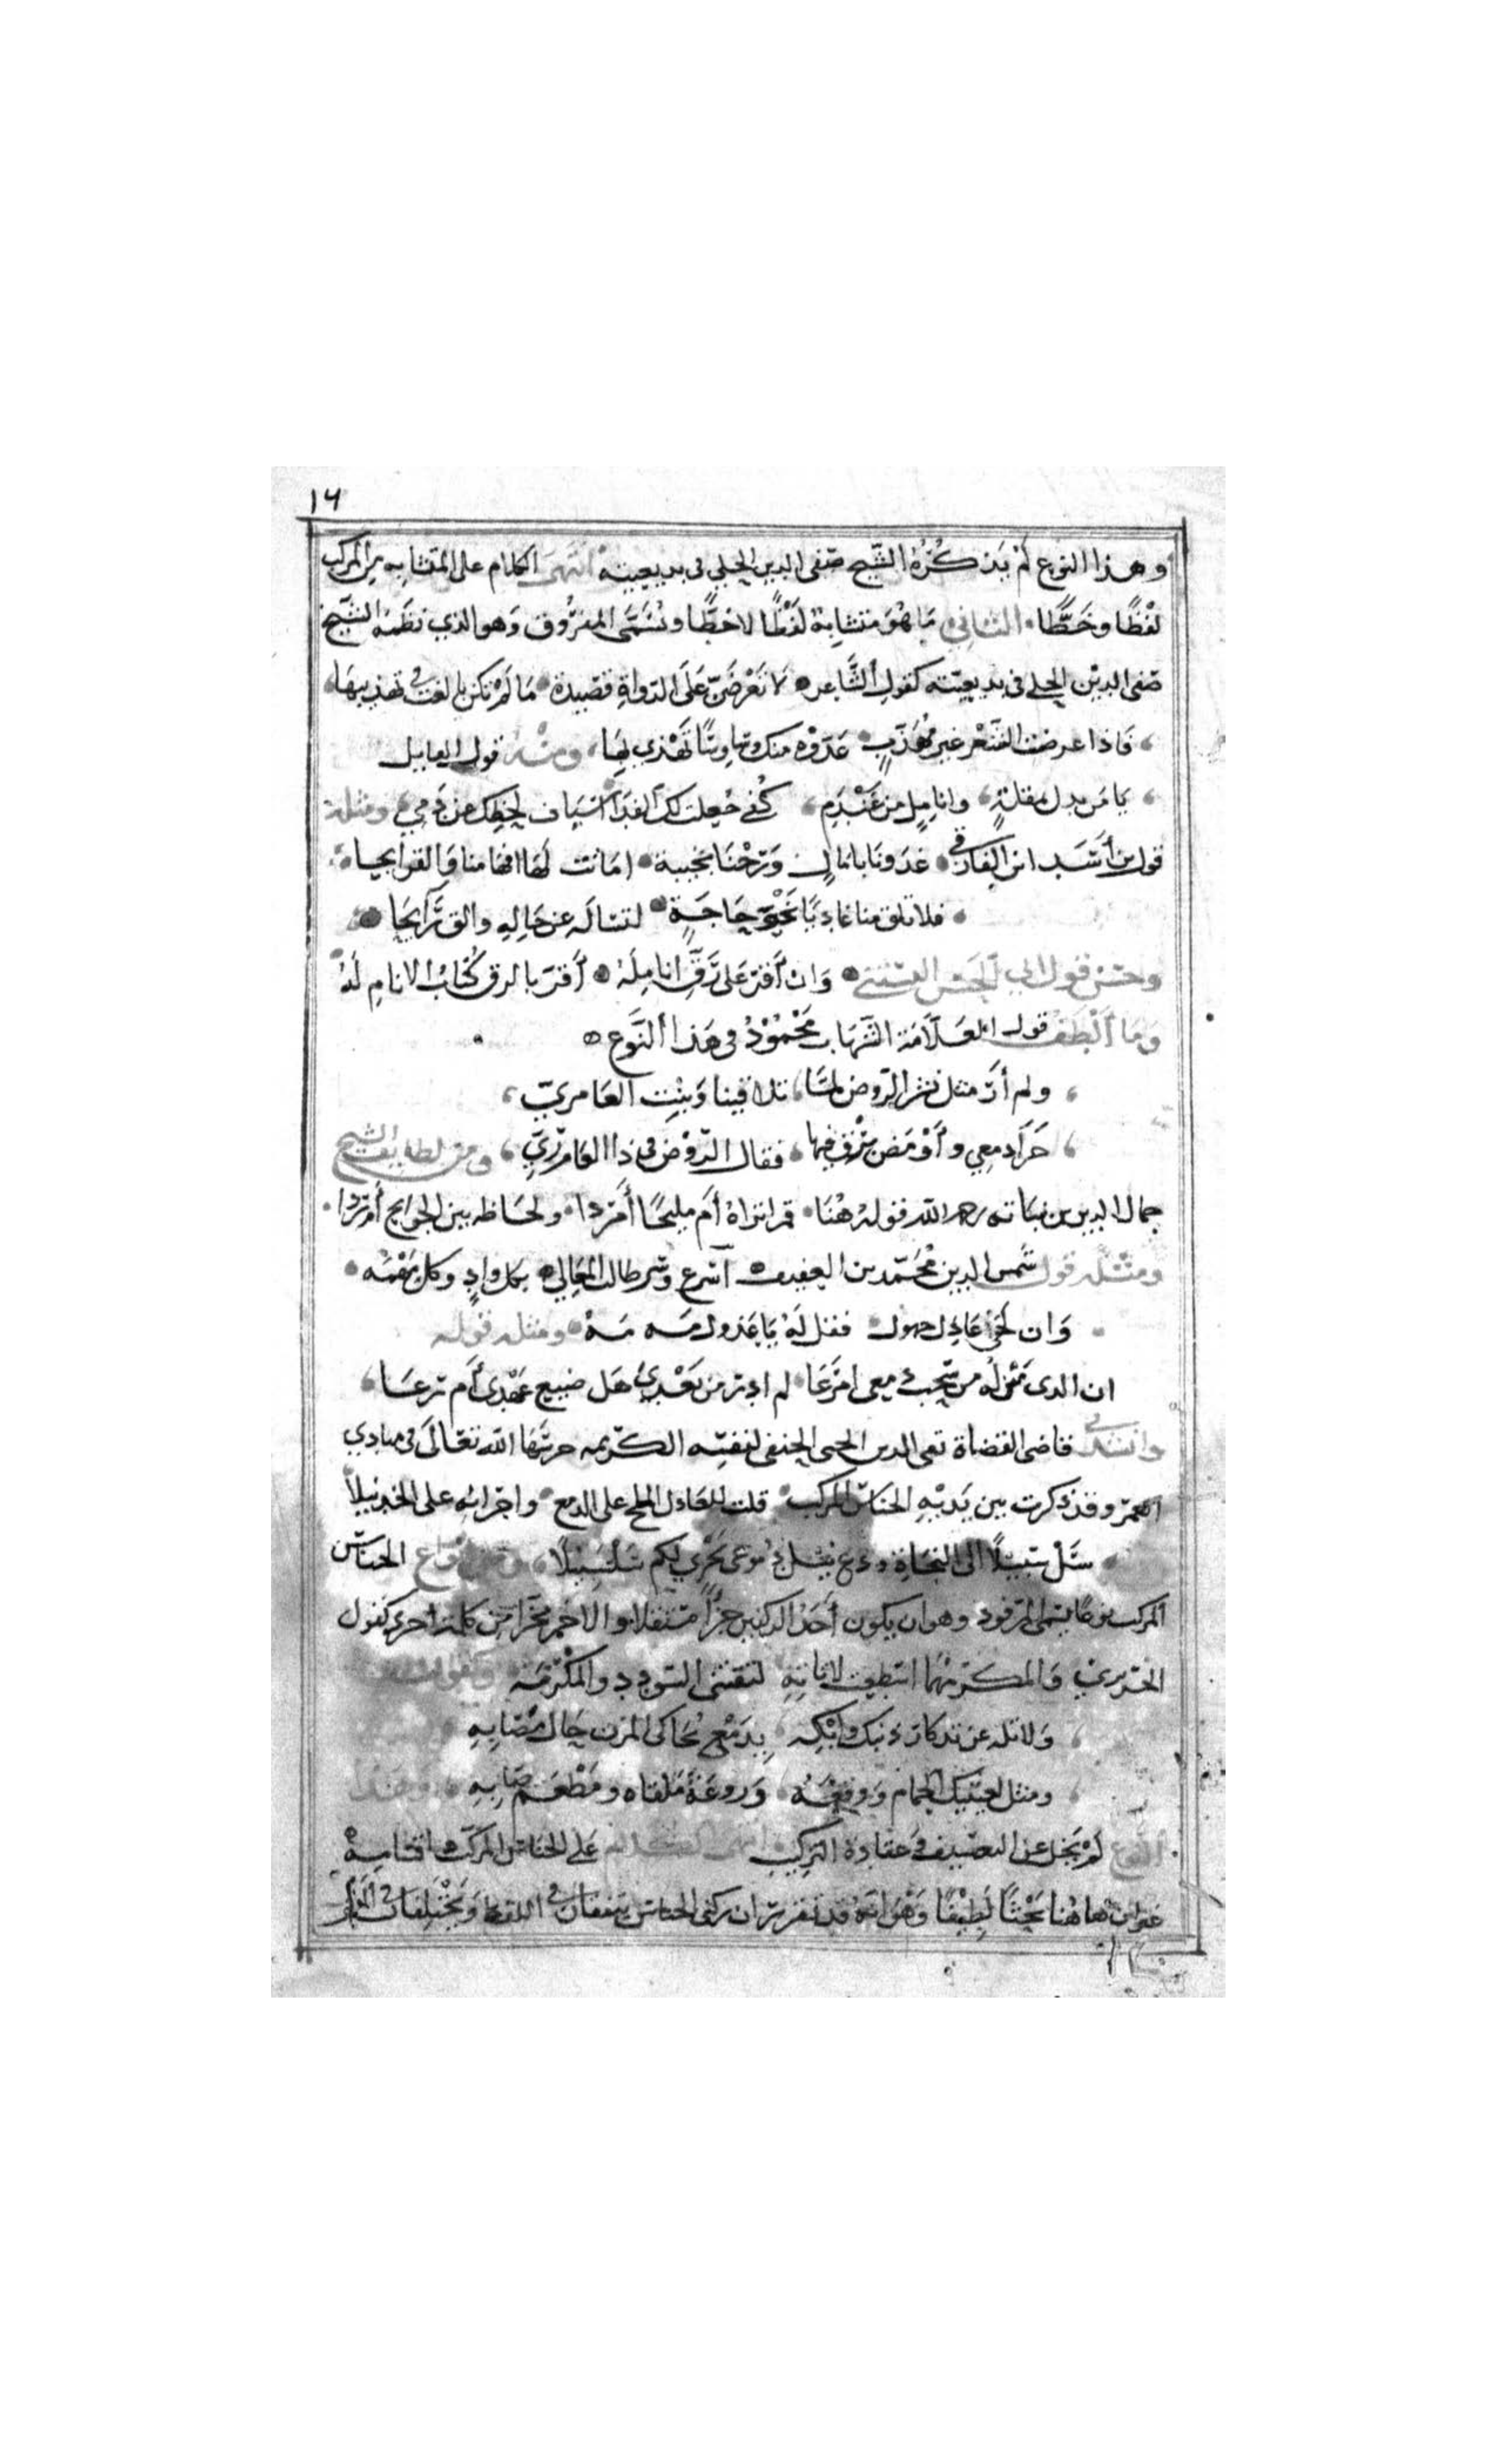 ١٦
وهذا النوع لم يذكره الشيخ صفي الدين الحلي في بديعيته انتهى الكلام على المتشابه من المركب
لفظًا وخطًّا الثاني ما هو متشابه لفظًا لا خطًّا ويُسَمّى المفروق وهو الذي نظمه الشيخ
صفي الدين الحلي في بديعيته كقول الشاعر لا تعرضَنّ على الرواة قصيدة ما لم تكن بالغت في تهذيبها
فاذا عرضت الشعر غير مهذّبٍ عدّوه منك وساوسًا تهذي بها ومنه قول القايل
يا من يدل بمقلةٍ وانامل من عندم كفي جعلت لك الفدا اسياف لحظك عن دمي ومثله
قول بن أسَد الفارقي غدونا بامالٍ ورحنا بخيبة اماتت لها افهامنا والقرايحا
فلا تلق منا غاديًا نحو حاجةٍ لتساله عن حاله والق رايحا
وحسن قول ابي الفتح البستي وان أقر على رقٍّ انامله أقر بالرق كتّاب الانام له
وما ألطف قول العلّامة الشهاب محمود في هذا النوع
ولم أر مثل نشر الروض لمّا تلاقينا وبنت العامريّ
جرا دمعي وأومض برق فيها فقال الروض في ذا العام ريّ ومن لطايف الشيخ
جمال الدين بن نباته رحمه الله قوله هنا قمرا نراه أم مليحًا أمردا ولحاظه بين الجوانح أم ردا
ومثله قول شمس الدين محمّد بن العفيف أسرع وسر طالب المعالي بكل وادٍ وكل مهمه
وان لحى عاذل جهول فقل له يا عذول مه مه ومثله قوله
ان الذي منزله من سحب دمعي امرعا لم ادر من بعدي هل ضيع عهدي أم رعا
وانشدني قاضي القضاة تقي الدين الحنفي لنفسه الكريمه حرسها الله تعالى في مبادي
العمر وقد ذكرت بين يديه الجناس المركب قلت للعاذل الملح على الدمع واجرائه على الخد نيلا
سل سبيلًا الى النجاة ودع نيل دموعي تجري لكم سلسبيلًا الجناس
المركب نوعًا يسمى المرفو وهو ان يكون أحد الركنين جزأً مستقلا والاخر مجزأ من كلمة اخرى كقول
الحريري والمكر مهما استطعت لا تاته لتقتني السودد والمكرمه
ولا تله عن تذكار ذنبك وابكه بدمع يحاكي المزن حال مصابه
ومثل لعينيك الحمام ووقعه وروعة ملقاه ومطعم صابه وهذا
النوع لم يخل عن التعسيف وعقادة التركيب انتهى الكلام على الجناس المركب واقسامه
غير ان ها هنا بحثًا لطيفًا وهو انه قد تقرر ان ركني الجناس يتفقان في اللفظ ويختلفان في